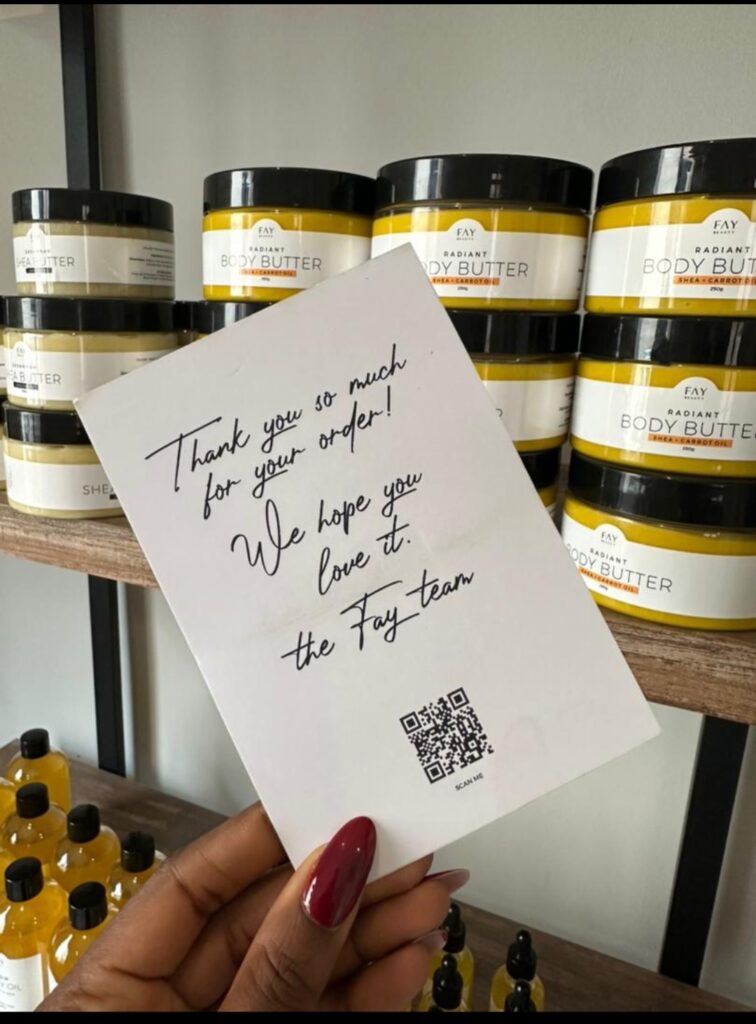 Thank you so much
for your order!
We hope you
love it.
the Fay team
SCAN ME
SHEA BUTTER
FAY
BEAUTY
RADIANT
BODY BUTTER
SHEA + CARROT OIL
250g
FAY
BEAUTY
RADIANT
BODY BUTTER
SHEA + CARROT OIL
250g
FAY
BEAUTY
RADIANT
BODY BUTTER
SHEA + CARROT OIL
250g
BUTTER
FAY
BEAUTY
RADIANT
BODY BUTTE
SHEA + CARROT OIL
250g
SHE
FAY
BEAUTY
RADIANT
BODY BUTTER
SHEA + CARROT OIL
OIL